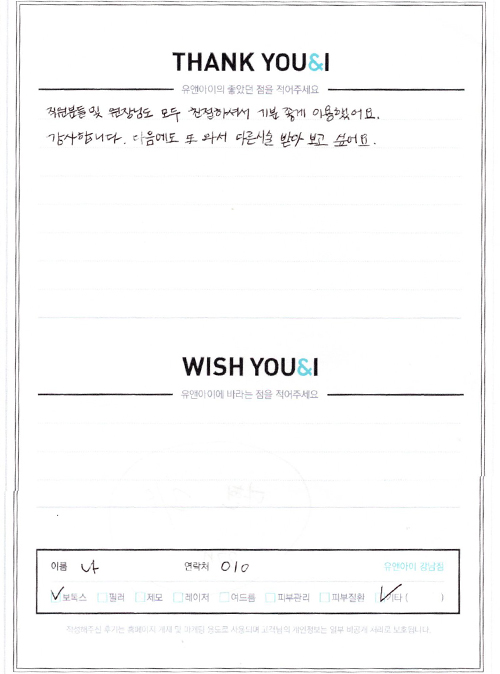 THANK YOU&I
유앤아이의 좋았던 점을 적어주세요
직원분들 및 원장님도 모두 친절하셔서 기분 좋게 이용했어요.
감사합니다. 다음에도 또 와서 다른시술 받아 보고 싶어요.
WISH YOU&I
유앤아이에 바라는 점을 적어주세요
이름 나 연락처 010 유앤아이 강남점
보톡스 필러 제모 레이저 여드름 피부관리 피부질환 기타 ( )
작성해주신 후기는 홈페이지 게재 및 마케팅 용도로 사용되며 고객님의 개인정보는 일부 비공개 처리로 보호됩니다.